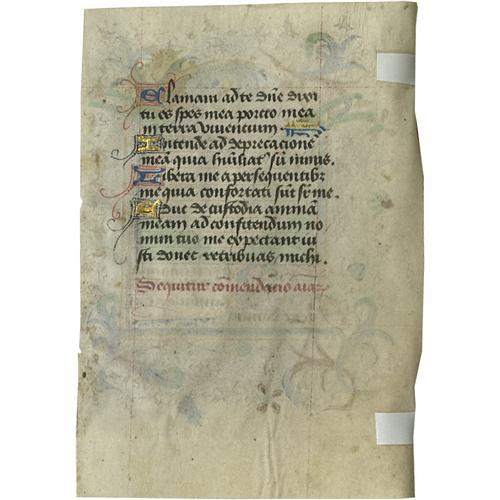 Clamam ad te dn̄e dixi
tu es spes mea porcio mea
in terra viventium
Intende ad deprecacione
meā quia humiliat' sū nimis.
Libera me a persequentibȝ
me quia confortati sūt sr̄ me.
Educ de custodia animā
meam ad confitendum no
mini tuo me expectant iu
sti donec retribuas michi.
Sequitur cōmendacio aīaꝝ